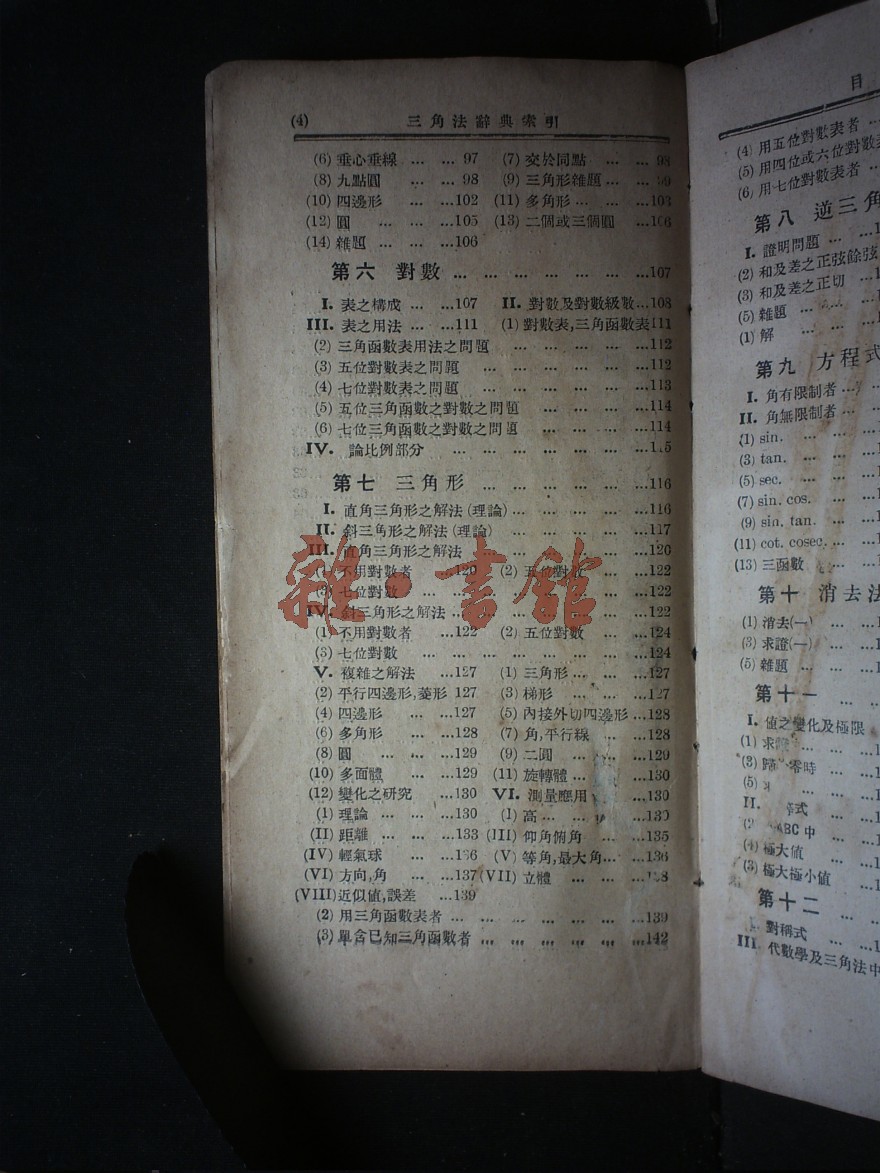 (4) 三角法辭典索引
(6) 垂心垂線 … … 97 (7) 交於同點 … … 98
(8) 九點圓 … … 98 (9) 三角形雜題 … … 99
(10) 四邊形 … …102 (11) 多角形 … …103
(12) 圓 … … …105 (13) 二個或三個圓 …106
(14) 雜題 … … …106
第六 對數 … … … … … … … …107
I. 表之構成 … …107 II. 對數及對數級數…108
III. 表之用法 … …111 (1) 對數表,三角函數表111
(2) 三角函數表用法之問題 … … … …112
(3) 五位對數表之問題 … … … … …112
(4) 七位對數表之問題 … … … … …113
(5) 五位三角函數之對數之問題 … … …114
(6) 七位三角函數之對數之問題 … … …114
IV. 論比例部分 … … … … … …115
第七 三角形 … … … … … … …116
I. 直角三角形之解法(理論)… … … … …116
II. 斜三角形之解法(理論) … … … … …117
III. 直角三角形之解法 … … … … … …120
(1) 不用對數者 …120 (2) 五位對數 … …122
(3) 七位對數 … … … … … … …122
IV. 斜三角形之解法 … … … … … …122
(1) 不用對數者 …122 (2) 五位對數 … …124
(3) 七位對數 … … … … … … …124
V. 複雜之解法 …127 (1) 三角形 … … …127
(2) 平行四邊形,菱形 127 (3) 梯形 … … …127
(4) 四邊形 … …127 (5) 內接外切四邊形 …128
(6) 多角形 … …128 (7) 角,平行線 … …128
(8) 圓 … … …129 (9) 二圓 … … …129
(10) 多面體 … …129 (11) 旋轉體 … … …130
(12) 變化之研究 …130 VI. 測量應用 … …130
(1) 理論 … … …130 (I) 高 … … …130
(II) 距離 … … …133 (III) 仰角俯角 … …135
(IV) 輕氣球 … …136 (V) 等角,最大角… …136
(VI) 方向,角 … …137 (VII) 立體 … … …138
(VIII) 近似値,誤差 …139
(2) 用三角函數表者 … … … … … …139
(3) 單含已知三角函數者 … … … … …142
雜·書館
目
(4) 用五位對數表者 …
(5) 用四位或六位對數
(6) 用七位對數表者 …
第八 逆三角
I. 證明問題 … …1
(2) 和及差之正弦餘弦
(3) 和及差之正切 …1
(5) 雜題 … … …1
(1) 解 … … …1
第九 方程式
I. 角有限制者 …
II. 角無限制者 …
(1) sin. … … …1
(3) tan. … … …1
(5) sec. … … …1
(7) sin. cos. … …1
(9) sin. tan. … …1
(11) cot. cosec. … …1
(13) 三函數 … …1
第十 消去法
(1) 消去(一) … …1
(3) 求證(一) … …1
(5) 雜題 … … …1
第十一 … …
I. 値之變化及極限
(1) 求 … … …1
(3) 歸 零時 … …1
(5) … … …1
II. 式
ABC 中 … …1
(4) 極大値 … …1
(3) 極大極小値 …1
第十二 … …
對稱式 … …1
III. 代數學及三角法中